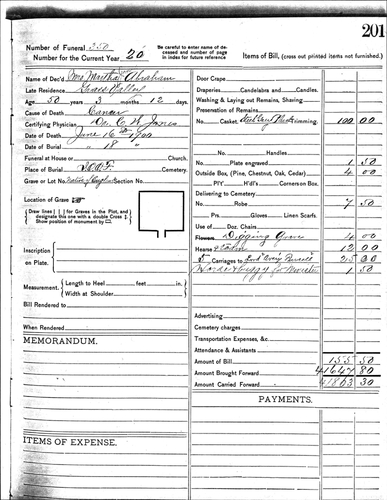 201
Number of Funeral 250
Number for the Current Year 20
Be careful to enter name of deceased and number of page in index for future reference
Items of Bill, (cross out printed items not furnished.)
Name of Dec'd Mrs Martha Abraham
Late Residence Grass Valley
Age 50 years 3 months 12 days.
Cause of Death Cancer
Certifying Physician Dr. C. W. Jones
Date of Death June 16th 1900
Date of Burial " 18 "
Funeral at House or Church.
Place of Burial I.O.O.F. Cemetery.
Grave or Lot No. Section No.
Location of Grave
Draw lines for Graves in the Plot, and designate this one with a double Cross
Show position of monument by
Inscription
on Plate.
Measurement. Length to Heel feet in.
Width at Shoulder
Bill Rendered to
When Rendered
MEMORANDUM.
ITEMS OF EXPENSE.
Door Crape
Draperies Candelabra and Candles.
Washing & Laying out Remains, Shaving
Preservation of Remains
No. Casket Trimming 100 00
No. Handles
No. Plate engraved 1 50
Outside Box, (Pine, Chestnut, Oak, Cedar) 4 00
P'Y H'dl's Corners on Box.
Delivering to Cemetery
No. Robe 7 50
Prs. Gloves Linen Scarfs
Use of Doz. Chairs
Flowers Digging Grave 4 00
Hearse 12 00
5 Carriages to 25 00
Horse & buggy for 1 50
Advertising
Cemetery charges
Transportation Expenses, &c.
Attendance & Assistants
Amount of Bill 155 50
Amount Brought Forward 41647 80
Amount Carried Forward 41803 30
PAYMENTS.